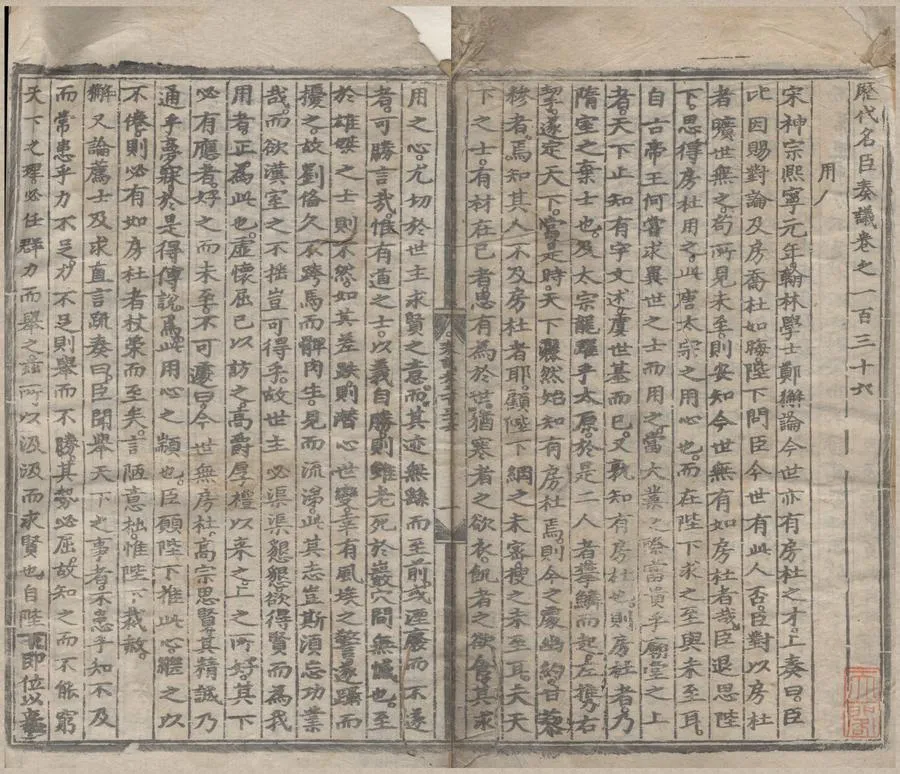 歷代名臣奏議卷之一百三十六
用人
宋神宗熙寧元年翰林學士鄭獬論今世亦有房杜之才上奏曰臣
比因賜對論及房喬杜如晦陛下問臣今世有此人否臣對以房杜
者曠世無之苟所見未至則安知今世無有如房杜者哉臣退思陛
下思得房杜用之此唐太宗之用心也而在陛下求之至與未至耳
自古帝王何嘗求異世之士而用之當大業之際當貴乎廟堂之上
者天下止知有宇文述虞世基而已又孰知有房杜也則房杜者乃
隋室之棄士也及太宗龍躍乎太原於是二人者攀鱗而起左攜右
挈遂定天下當是時天下然始知有房杜焉則今之處幽約甘藜
糝者焉知其人不及房杜者耶顧陛下網之未密搜之未至耳夫天
下之士有材在已者思有為於世猶寒者之欲衣飢者之欲食其求
用之心尤切於世主求賢之意而其迹無緣而至前或湮廢而不遂
者可勝言哉惟有道之士以義自勝則雖老死於巖穴間無憾也至
於雄傑之士則不然如其差跌則潛心世變幸有風埃之警遂躡而
擾之故劉備久不跨馬而髀肉生見而流涕此其志豈斯須忘功業
哉而欲漢室之不擾豈可得乎故世主必渠渠懇懇欲得賢而為我
用者正為此也虛懷屈已以訪之高爵厚禮以來之上之所好其下
必有應者好之而未至不可遽曰今世無房杜高宗思賢其精誠乃
通乎夢寐於是得傅說為此用心之類也臣願陛下推此心繼之以
不倦則必有如房杜者杖策而至矣言陋意拙惟陛下裁赦
獬又論薦士及求直言疏奏曰臣聞舉天下之事者不患乎知不及
而常患乎力不足力不足則舉而不勝其勢必屈故知之而不能窮
天下之理必任群力而舉之所以汲汲而求賢也自陛下即位以來